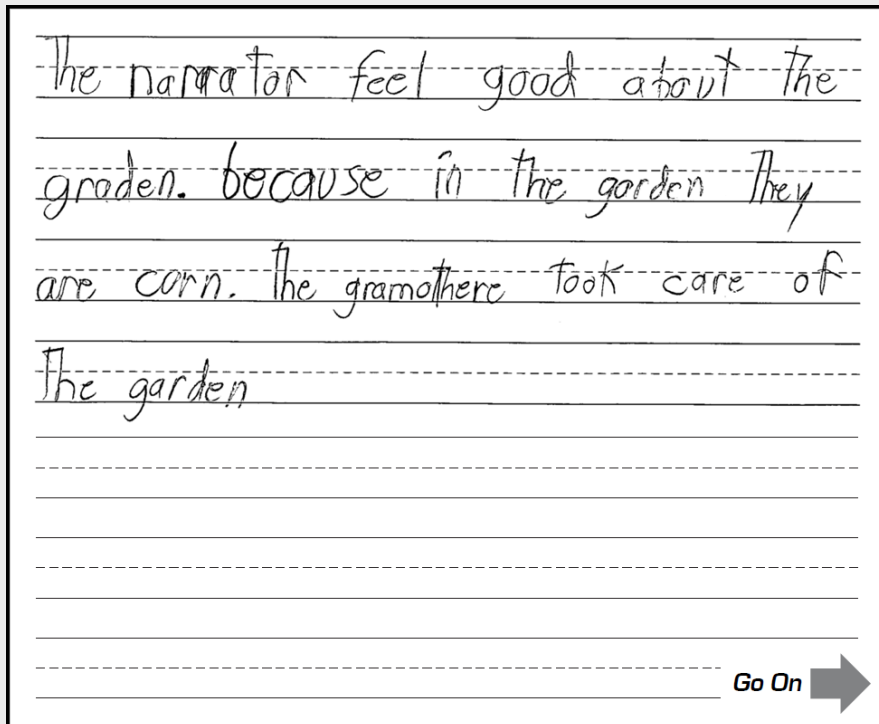 The narrator feel good about the
graden. because in the garden They
are corn. The gramothere took care of
The garden
Go On